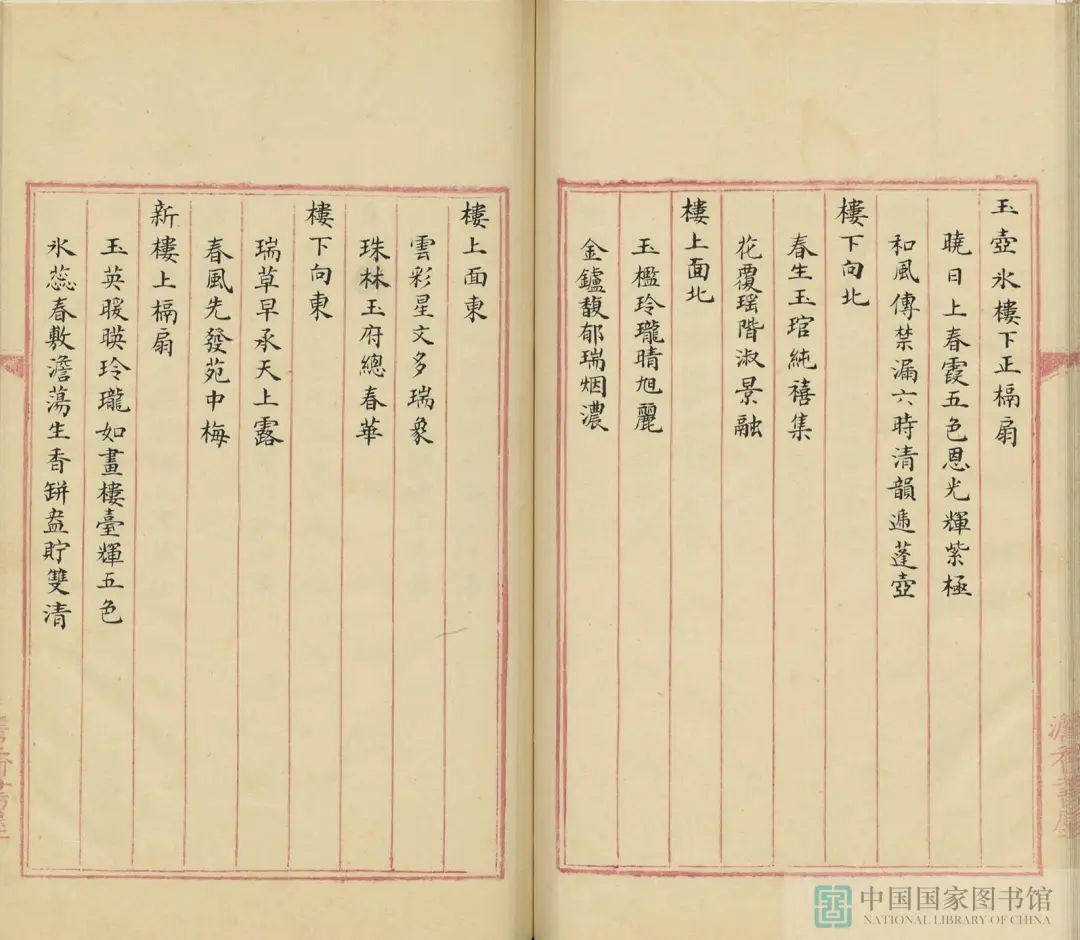 玉壺氷樓下正槅扇
曉日上春霞五色恩光輝紫極
和風傳禁漏六時清韻遞蓬壺
樓下向北
春生玉琯純禧集
花覆瑶階淑景融
樓上面北
玉檻玲瓏晴旭麗
金鑪馥郁瑞烟濃
樓上面東
雲彩星文多瑞象
珠林玉府總春華
樓下向東
瑞草早承天上露
春風先發苑中梅
新樓上槅扇
玉英暖暎玲瓏如畫樓臺輝五色
氷蕊春敷澹蕩生香缾盎貯雙清
中国国家图书馆
NATIONAL LIBRARY OF CHINA